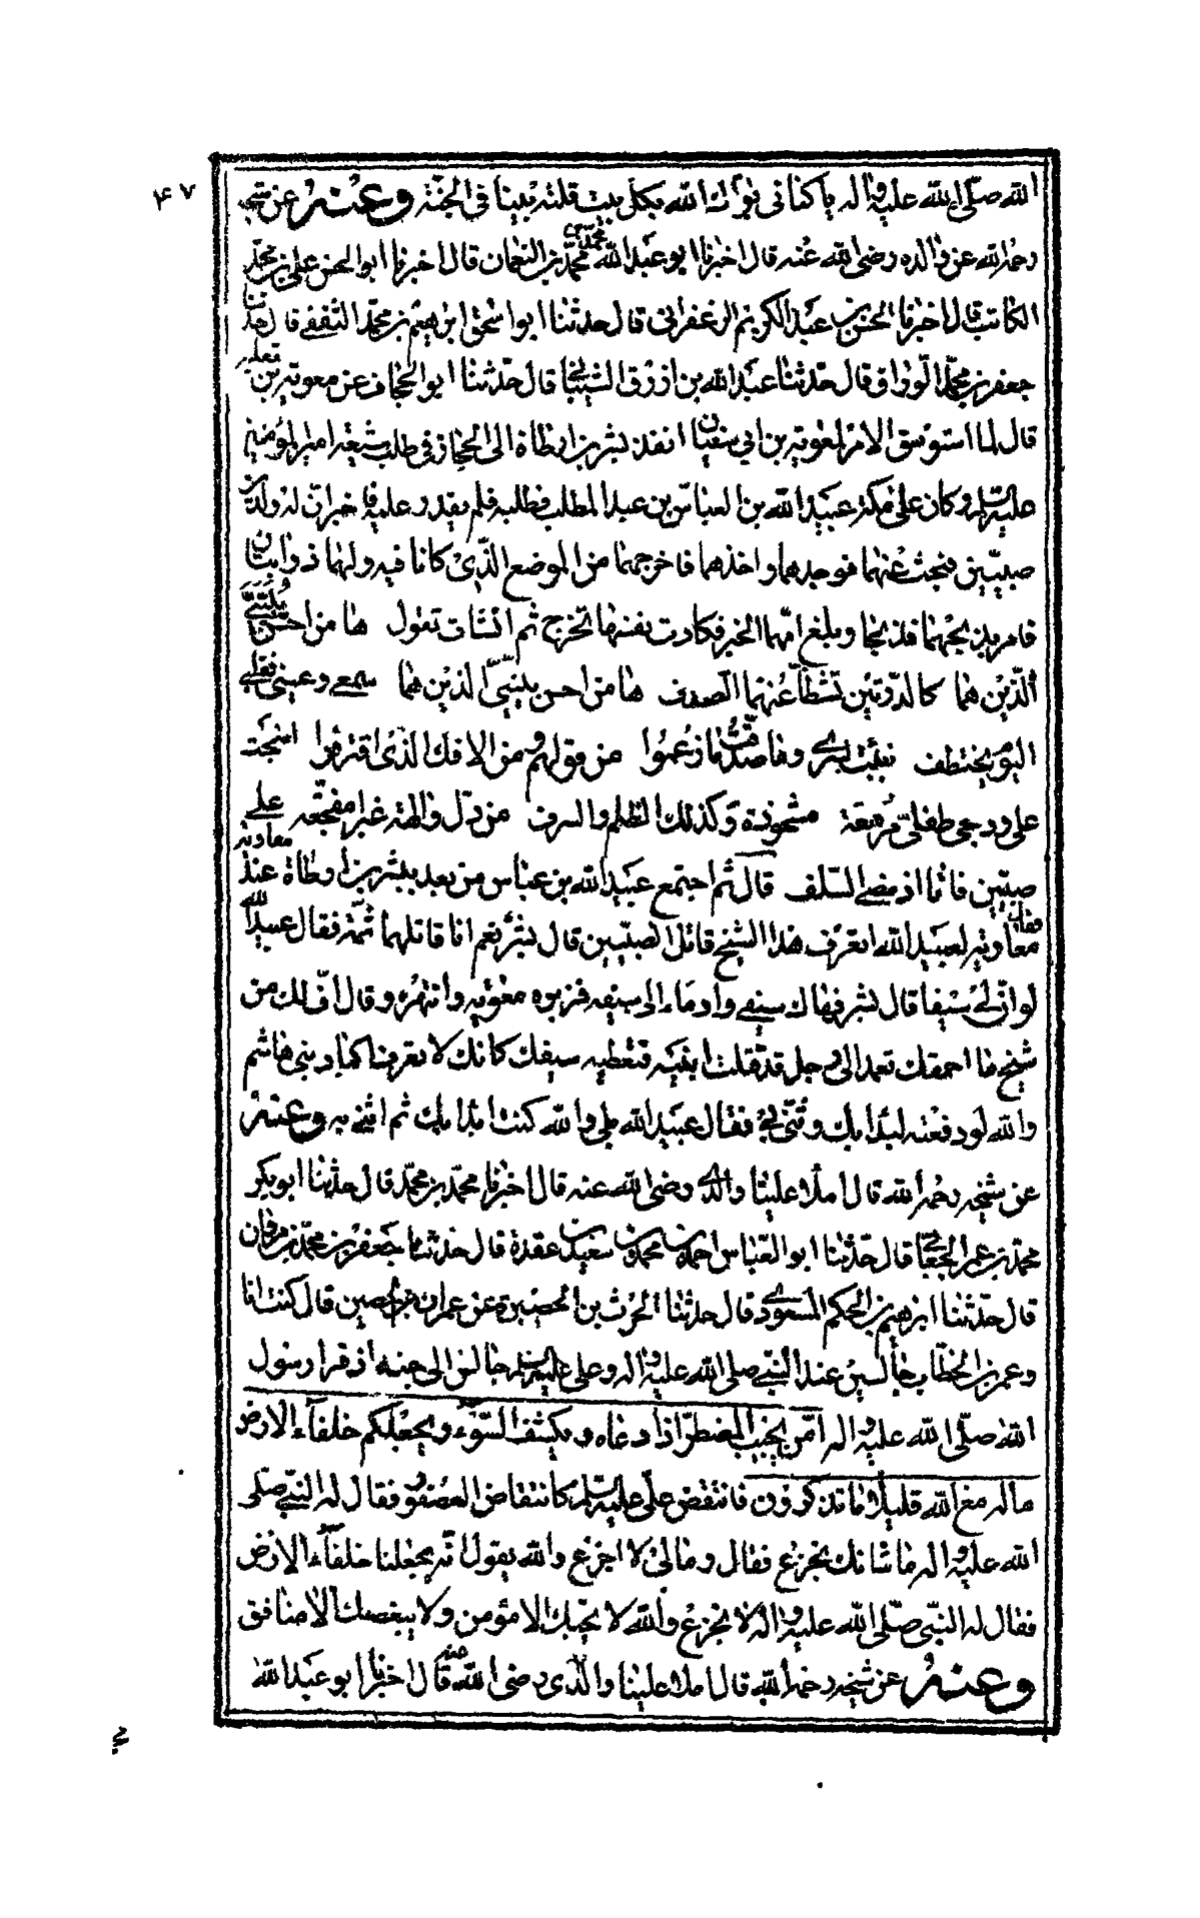 ۴۷
الله صلّى الله عليه واله يا كنانى نواك الله بكل بيت قلته بيتا فى الجنّة وعنه عن شيخه
رحمه الله عن والده رضى الله عنه قال اخبرنا ابو عبد الله محمّد بن محمد بن النعمان قال اخبرنا ابو الحسن على بن محمّد
الكاتب قال اخبرنا الحسن بن عبد الكريم الزعفرانى قال حدثنا ابو اسحق ابرهيم بن محمّد الثقفى قال حدثنا
جعفر بن محمّد الورّاق قال حدّثنا عبد الله بن ازرق الشيبانى قال حدّثنا ابو الجحاف عن معوية بن ثعلبه
قال لما استوسق الامر لمعوية بن ابي سفيان انفذ بشر بن ارطاة الى الحجاز فى طلب شيعة امير المؤمنين
عليه السلم وكان على مكة عبيد الله بن العباس بن عبد المطلب فطلبه فلم يقدر عليه فاخبر انّ له ولدين
صبيّين فبحث عنهما فوجدهما واخذهما فاخرجهما من الموضع الذّى كانا فيه ولهما ذوابتان
فامر بذبحهما فذبحا وبلغ امّهما الخبر فكادت نفسها تخرج ثم انشات تقول ها من احسّ بنيّي
الّذين هما كالدّرتين تشظّا عنهما الصدف ها من احس بنيّي الذين هما سمعى وعينى فقلبى
اليوم مختطف نبئت بشرى وما صدّقت ما زعموا من قولهم ومن الافك الذى اقترفوا انحت
على ودجى طفلىّ مرهفة مشحوذة وكذلك الظلم والسرف من دلّ والهة عبرا مفجّعه على
صبيّين فاتا اذ مضى السّلف قال ثم اجتمع عبيد الله بن عباس من بعد ببشر بن ارطاة عند معاوية
فقال معاوية لعبيد الله اتعرف هذا الشيخ قاتل الصبيّين قال بشر نعم انا قاتلهما ثمّه فقال عبيد الله
لو انّ لى سيفا قال بشر فهاك سيفى واومأ الى سيفه فزبره معوية وانتهره وقال افّ لك من
شيخ ما احمقك تعمد الى رجل قد قتلت ابنيه فتعطيه سيفك كانك لا تعرف اكباد بنى هاشم
والله لو دفعته لبدا بك وثنّى بى فقال عبيد الله بلى والله كنت ابدا بك ثم اثنى به وعنه
عن شيخه رحمه الله قال املا علينا والدى رضى الله عنه قال اخبرنا محمّد بن محمّد قال حدثنا ابو بكر
محمّد بن عمر الجعابى قال حدّثنا ابو العبّاس احمد بن محمد بن سعيد بن عقدة قال حدثنا جعفر بن محمّد بن مروان
قال حدّثنا ابرهيم بن الحكم المسعودى قال حدثنا الحرث بن الحصيرة عن عمران بن الحصين قال كنت انا
وعمر بن الخطّاب جالسين عند النّبى صلى الله عليه واله وعلى عليه السلم جالس الى جنبه اذ قرا رسول
الله صلّى الله عليه واله امّن يجيب المضطرّ اذا دعاه ويكشف السّوء ويجعلكم خلفآء الارض
ءاله مع الله قليلا ما تذكرون فانتقض علىّ عليه السلم كانتقاض العصفور فقال له النبى صلّى
الله عليه واله ما شانك تجزع فقال ومالى لا اجزع والله يقول انّه يجعلنا خلفآء الارض
فقال له النّبى صلّى الله عليه واله لا تجزع والله لا يحبّك الا مؤمن ولا يبغضك الا منافق
وعنه عن شيخه رحمه الله قال املا علينا والدى رضى الله عنه قال اخبرنا ابو عبد الله